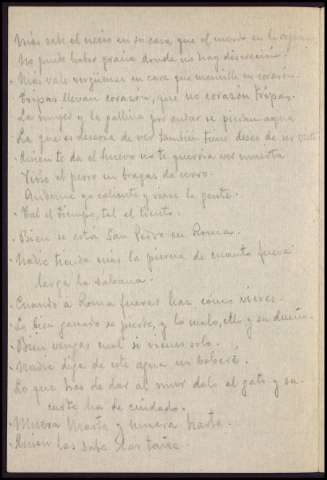 Más sabe el necio en su casa que el cuerdo en la ajena.
No puede haber gracia donde no hay discreción.
- Más vale vergüenza en cara que mancilla en corazón.
Tripas llevan corazón, que no corazón tripas.
La mujer y la gallina por andar se pierden aína
La que es deseosa de ver también tiene deseo de ser vista
- Quien te da el hueso no te querría ver muerta
Vióse el perro en bragas de cerro.
Ándeme yo caliente y ríase la gente.
- Tal el tiempo, tal el tiento.
- Bien se está San Pedro en Roma.
- Nadie tienda más la pierna de cuanto fuera
larga la sábana.
- Cuando a Roma fueres haz como vieres.
- Lo bien ganado se pierde, y lo malo, ello y su dueño.
- Bien vengas mal si vienes solo.
- Nadie diga de esta agua no beberé.
- Lo que has de dar al mur dalo al gato y su
carte ha de cuidado.
- Muera Marta y muera harta.
- Quien las sabe las tañe.